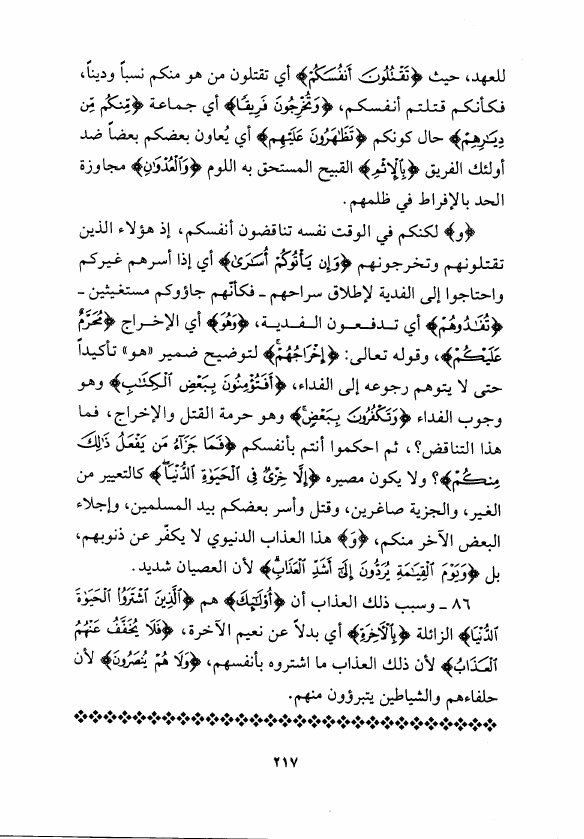 للعهد، حيث ﴿تَقْتُلُونَ أَنفُسَكُمْ﴾ أي تقتلون من هو منكم نسباً وديناً،
فكأنكم قتلتم أنفسكم، ﴿وَتُخْرِجُونَ فَرِيقًا﴾ أي جماعة ﴿مِّنكُم مِّن
دِيَٰرِهِمْ﴾ حال كونكم ﴿تَظَٰهَرُونَ عَلَيْهِم﴾ أي يُعاون بعضكم بعضاً ضد
أولئك الفريق ﴿بِٱلْإِثْمِ﴾ القبيح المستحق به اللوم ﴿وَٱلْعُدْوَٰنِ﴾ مجاوزة
الحد بالإفراط في ظلمهم.
﴿و﴾ لكنكم في الوقت نفسه تناقضون أنفسكم، إذ هؤلاء الذين
تقتلونهم وتخرجونهم ﴿وَإِن يَأْتُوكُمْ أُسَٰرَىٰ﴾ أي إذا أسرهم غيركم
واحتاجوا إلى الفدية لإطلاق سراحهم ـ فكأنّهم جاؤوكم مستغيثين ـ
﴿تُفَٰدُوهُمْ﴾ أي تدفعون الفدية، ﴿وَهُوَ﴾ أي الإخراج ﴿مُحَرَّمٌ
عَلَيْكُمْ﴾، وقوله تعالى: ﴿إِخْرَاجُهُمْ ۚ﴾ لتوضيح ضمير «هو» تأكيداً
حتى لا يتوهم رجوعه إلى الفداء، ﴿أَفَتُؤْمِنُونَ بِبَعْضِ ٱلْكِتَٰبِ﴾ وهو
وجوب الفداء ﴿وَتَكْفُرُونَ بِبَعْضٍ ۚ﴾ وهو حرمة القتل والإخراج، فما
هذا التناقض؟، ثم احكموا أنتم بأنفسكم ﴿فَمَا جَزَآءُ مَن يَفْعَلُ ذَٰلِكَ
مِنكُمْ﴾؟ ولا يكون مصيره ﴿إِلَّا خِزْىٌ فِى ٱلْحَيَوٰةِ ٱلدُّنْيَا ۖ﴾ كالتعيير من
الغير، والجزية صاغرين، وقتل وأسر بعضكم بيد المسلمين، وإجلاء
البعض الآخر منكم، ﴿وَ﴾ هذا العذاب الدنيوي لا يكفّر عن ذنوبهم،
بل ﴿وَيَوْمَ ٱلْقِيَٰمَةِ يُرَدُّونَ إِلَىٰٓ أَشَدِّ ٱلْعَذَابِ ۗ﴾ لأن العصيان شديد.
٨٦ ـ وسبب ذلك العذاب أن ﴿أُو۟لَٰٓئِكَ﴾ هم ﴿ٱلَّذِينَ ٱشْتَرَوُا۟ ٱلْحَيَوٰةَ
ٱلدُّنْيَا﴾ الزائلة ﴿بِٱلْءَاخِرَةِ ۖ﴾ أي بدلاً عن نعيم الآخرة، ﴿فَلَا يُخَفَّفُ عَنْهُمُ
ٱلْعَذَابُ﴾ لأن ذلك العذاب ما اشتروه بأنفسهم، ﴿وَلَا هُمْ يُنصَرُونَ﴾ لأن
حلفاءهم والشياطين يتبرؤون منهم.
٢١٧